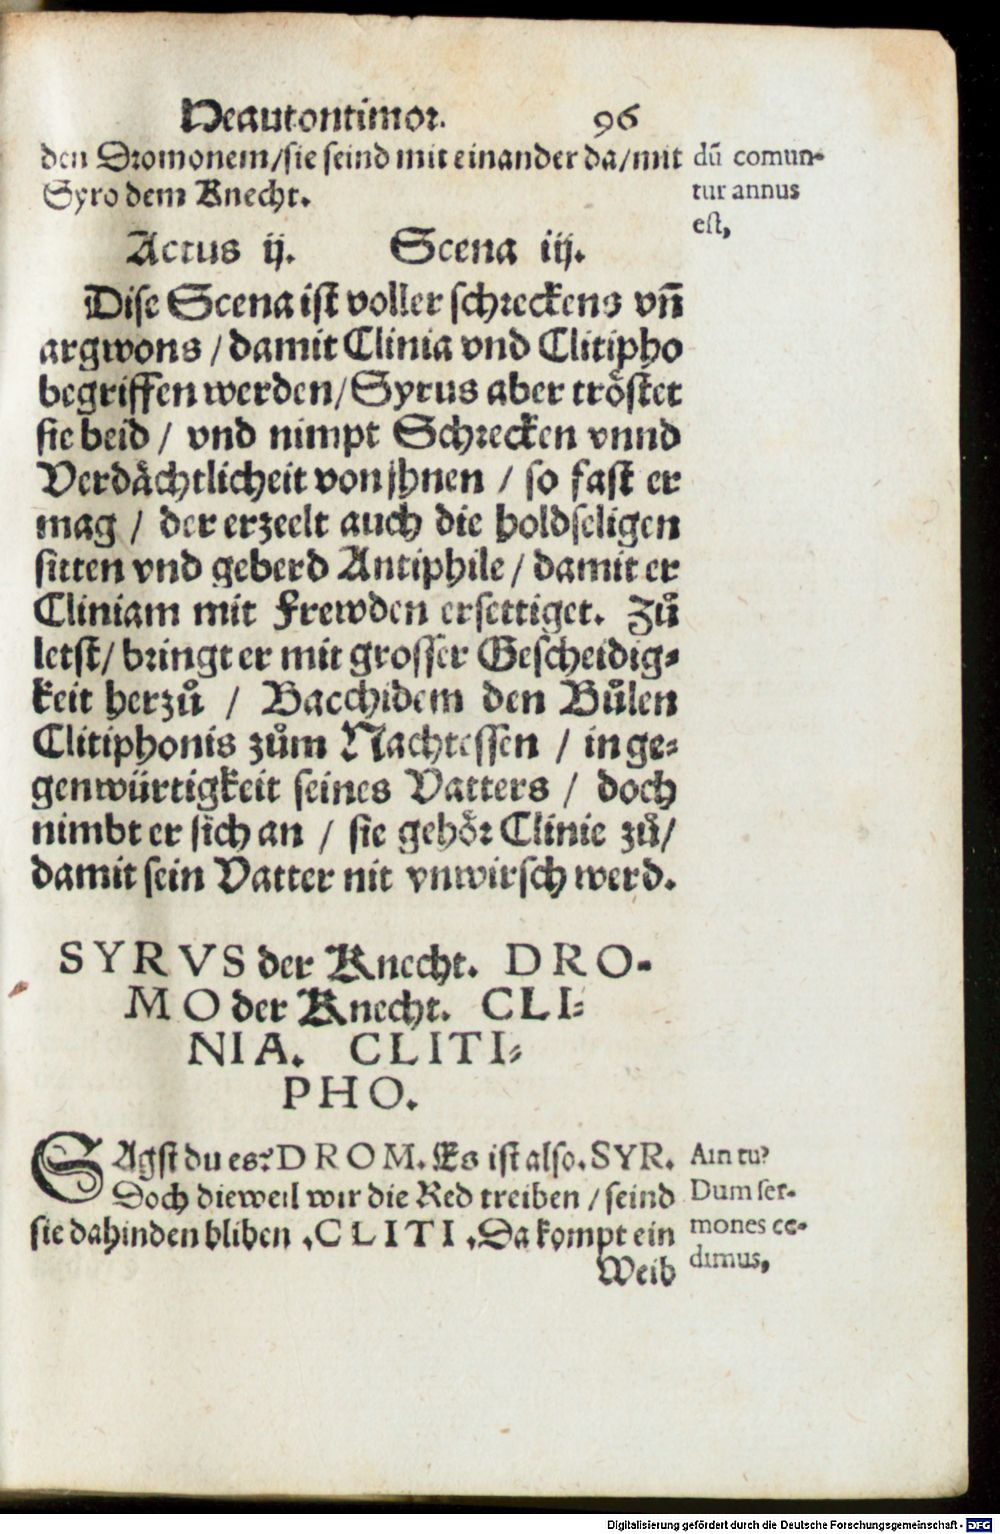 Heautontimor. 96
den Dromonem/sie seind mit einander da/mit
Syro dem Knecht.
dū comun-
tur annus
est,
Actus ij. Scena iij.
Dise Scena ist voller schreckens vñ
argwons / damit Clinia vnd Clitipho
begriffen werden/Syrus aber tröstet
sie beid / vnd nimpt Schrecken vnnd
Verdächtlicheit von jhnen / so fast er
mag / der erzeelt auch die holdseligen
sitten vnd geberd Antiphile / damit er
Cliniam mit Frewden ersettiget. Zů
letst/ bringt er mit grosser Gescheidig-
keit herzů / Bacchidem den Bůlen
Clitiphonis zům Nachtessen / in ge-
genwürtigkeit seines Vatters / doch
nimbt er sich an / sie gehör Clinie zů/
damit sein Vatter nit vnwirsch werd.
SYRVS der Knecht. DRO-
MO der Knecht. CLI-
NIA. CLITI-
PHO.
SAgst du es? DROM. Es ist also. SYR.
Doch dieweil wir die Red treiben / seind
sie dahinden bliben . CLITI . Da kompt ein
Weib
Ain tu?
Dum ser-
mones ce-
dimus,
Digitalisierung gefördert durch die Deutsche Forschungsgemeinschaft - DFG